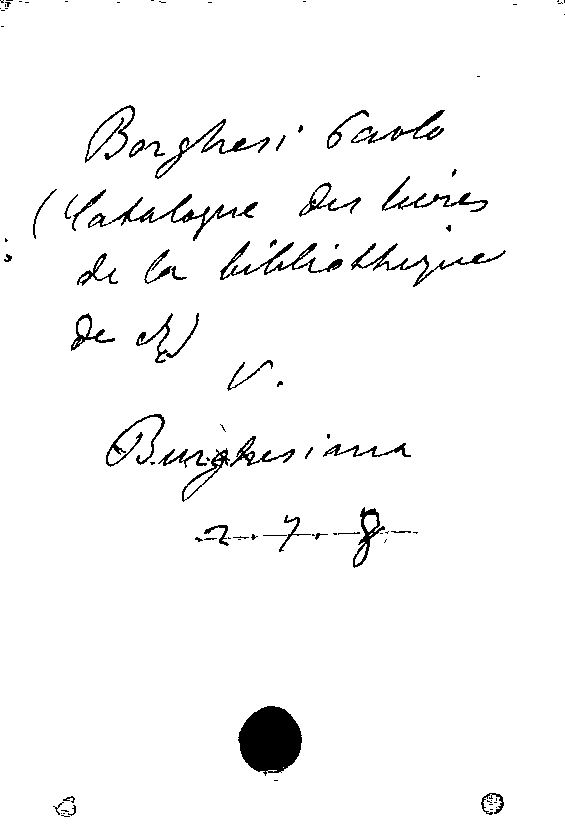 Borghesi Paolo
(Catalogue des livres
de la bibliothèque
de
V.
Burghesiana
2.7.8